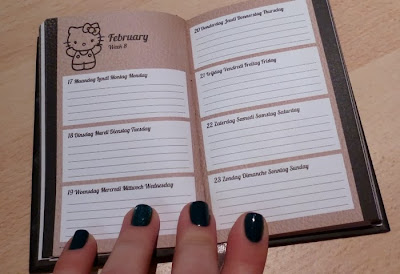 February
Week 8
17 Maandag Lundi Montag Monday
18 Dinsdag Mardi Dienstag Tuesday
19 Woensdag Mercredi Mittwoch Wednesday
20 Donderdag Jeudi Donnerstag Thursday
21 Vrijdag Vendredi Freitag Friday
22 Zaterdag Samedi Samstag Saturday
23 Zondag Dimanche Sonntag Sunday